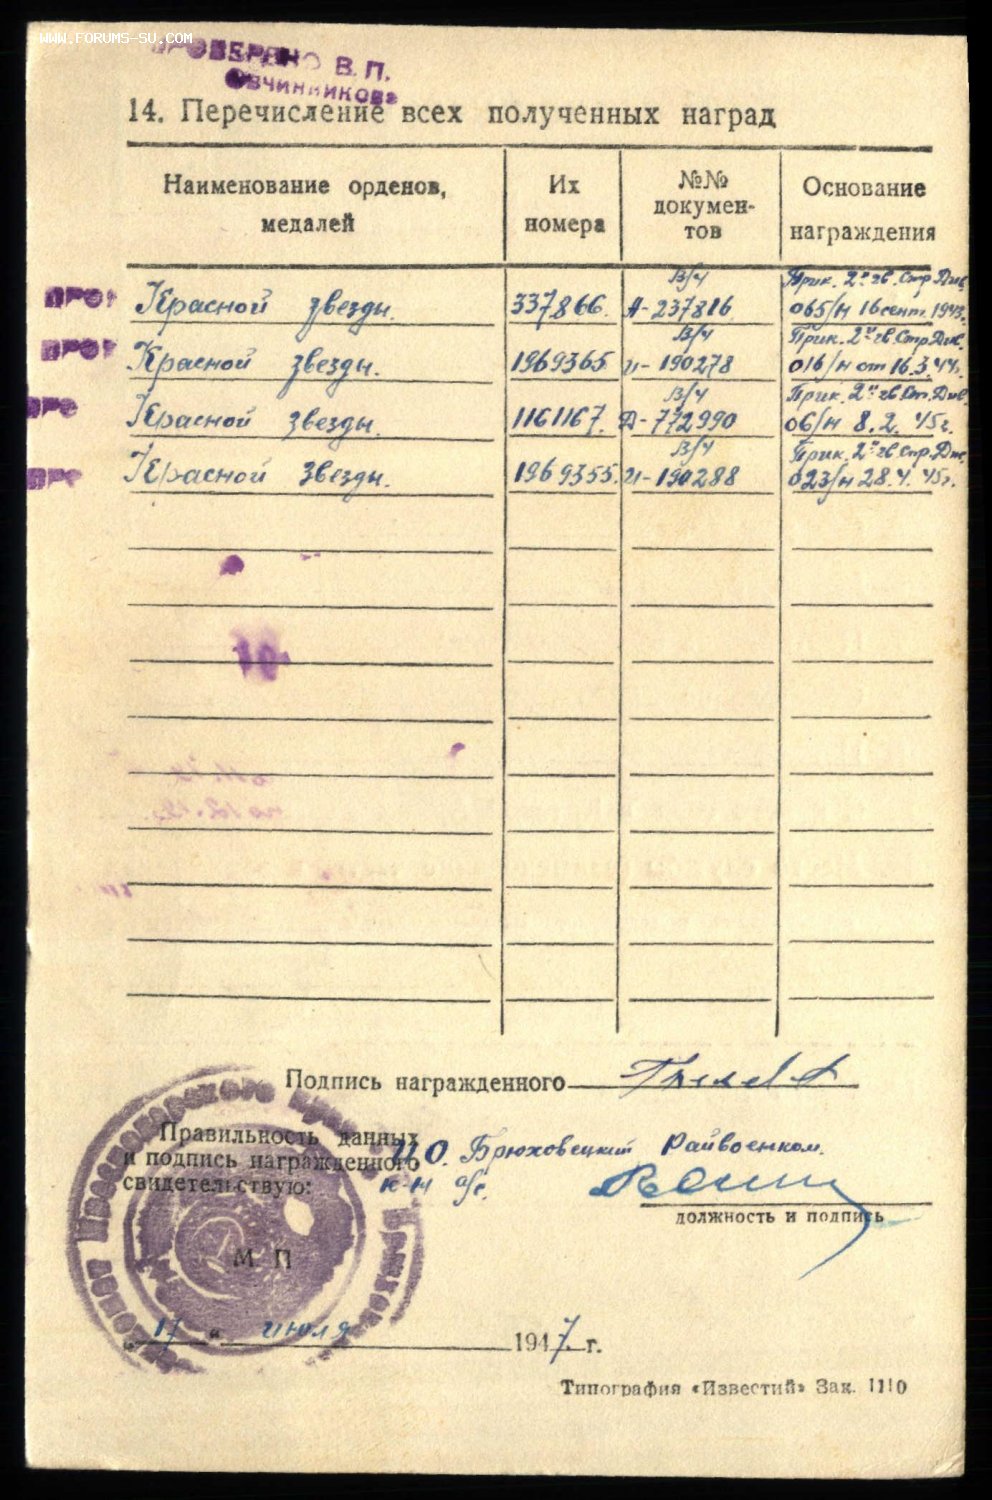 WWW.FORUMS-SU.COM
ПРОВЕРЕНО В.П.
Овчинникова
14. Перечисление всех полученных наград
Наименование орденов, медалей
Их номера
№№ документов
Основание награждения
ПРОВ Красной звезды. 337866. В/ч А-237816 Прик. 2й гв. Стр. Див. 065/н 16 сент. 1943г.
ПРОВ Красной звезды. 1969365 В/ч И-190278 Прик. 2й гв. Стр. Див. 016/н от 16.3.44г.
ПРО Красной звезды. 1161167. В/ч Д-772990 Прик. 2й гв. Ст. Див. 06/н 8.2.45г.
ПРО Красной Звезды. 1969355. В/ч И-190288 Прик. 2й гв. Стр. Див. 023/н 28.4.45г.
Подпись награжденного
Правильность данных
и подпись награжденного
свидетельствую:
И О. Брюховецкий Райвоенком.
к-н а/с.
должность и подпись
М. П
„17“ июля 1947. г.
Типография «Известий» Зак. 1110